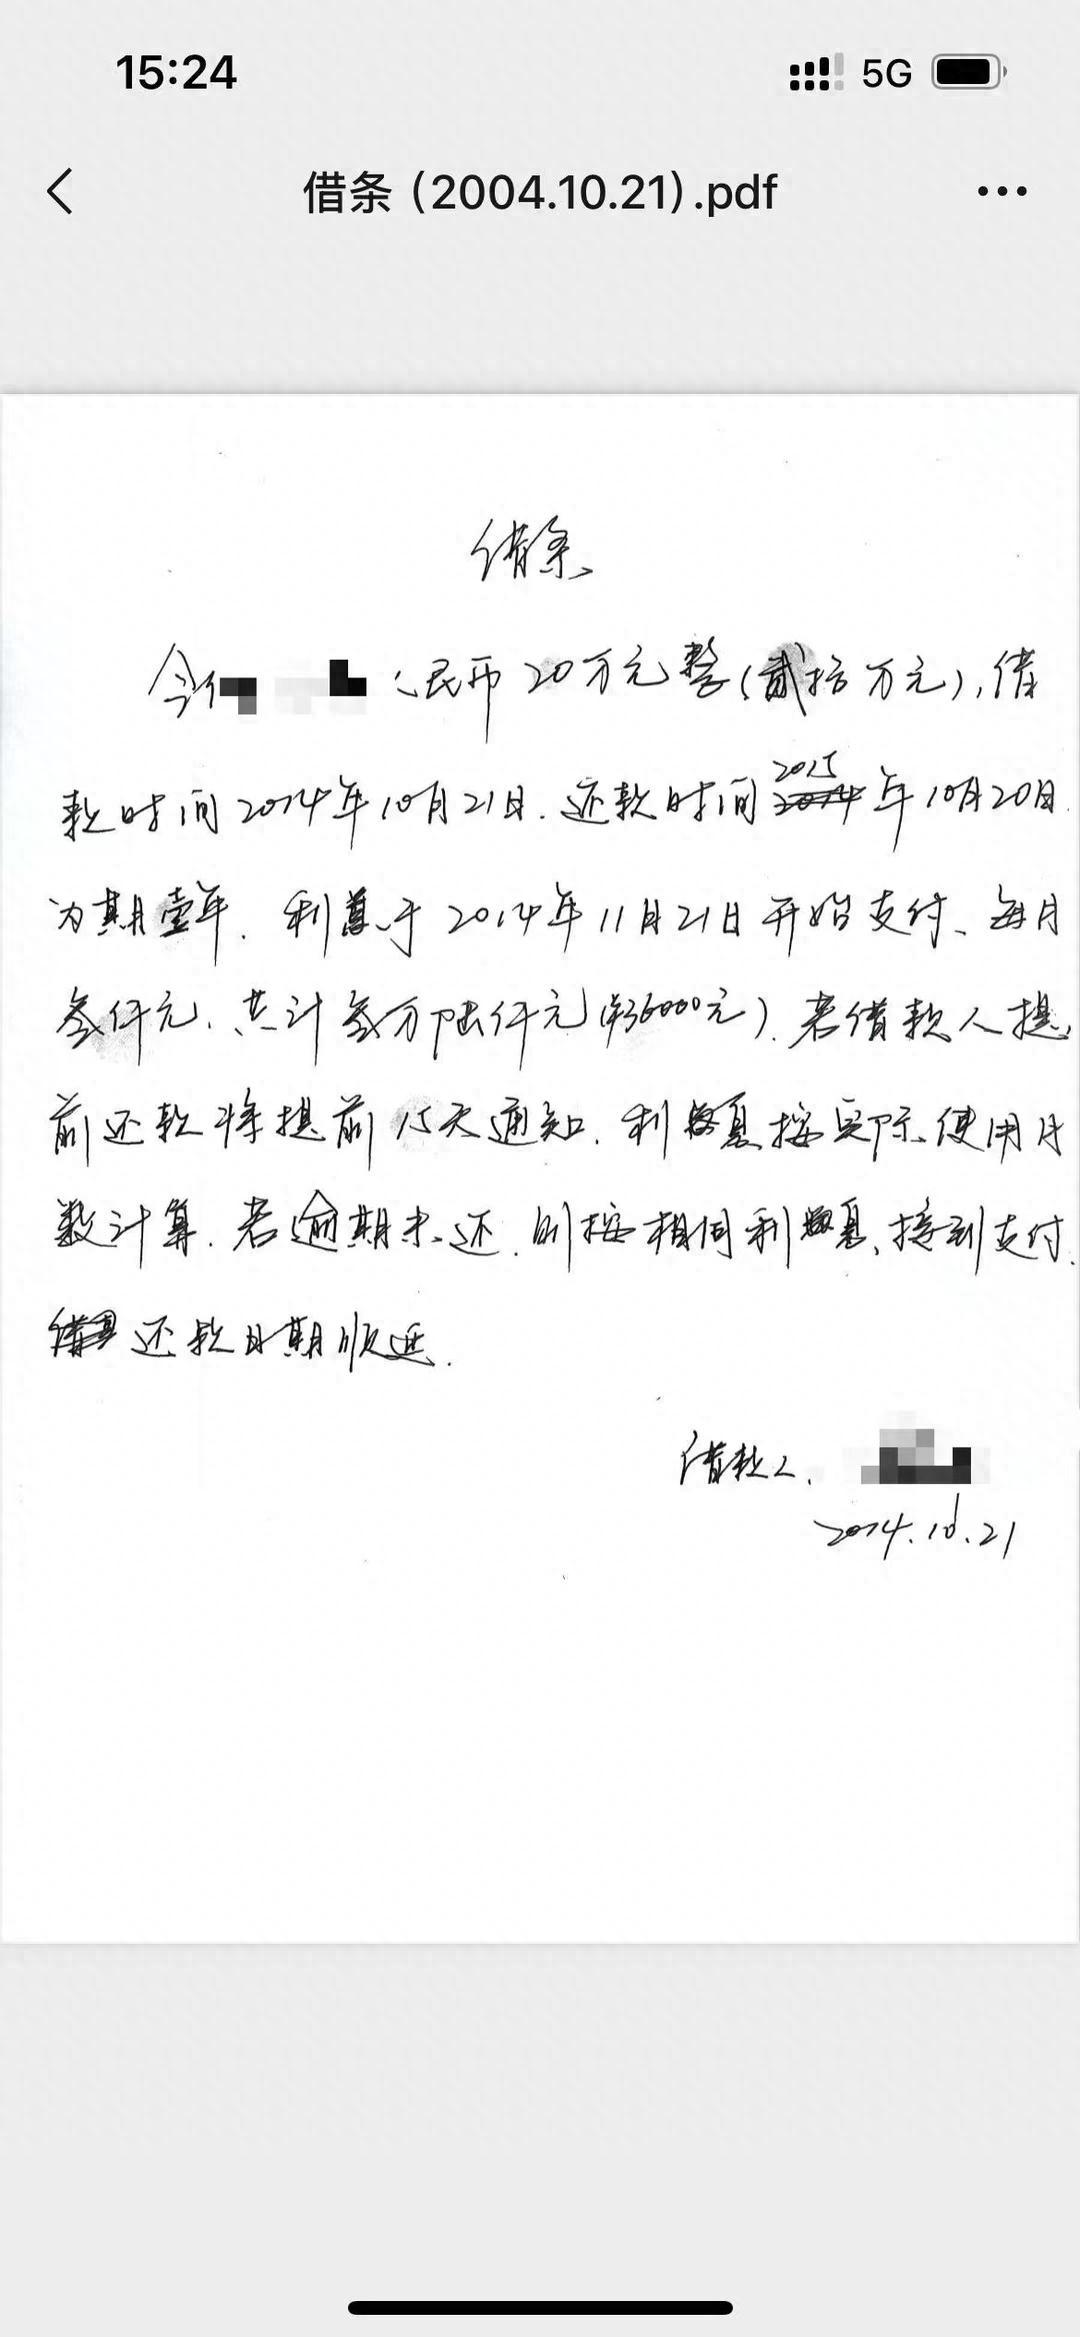 15:24
5G
借条 (2004.10.21).pdf
借条
今借 人民币 20万元整(贰拾万元),借
款时间2014年10月21日.还款时间2015年10月20日.
为期壹年.利息于2014年11月21日开始支付、每月
叁仟元.共计叁万陆仟元(¥36000元).若借款人提
前还款将提前15天通知.利息按实际使用月
数计算.若逾期未还.则按相同利息,接到支付.
还款日期顺延.
借款人.
2014.10.21